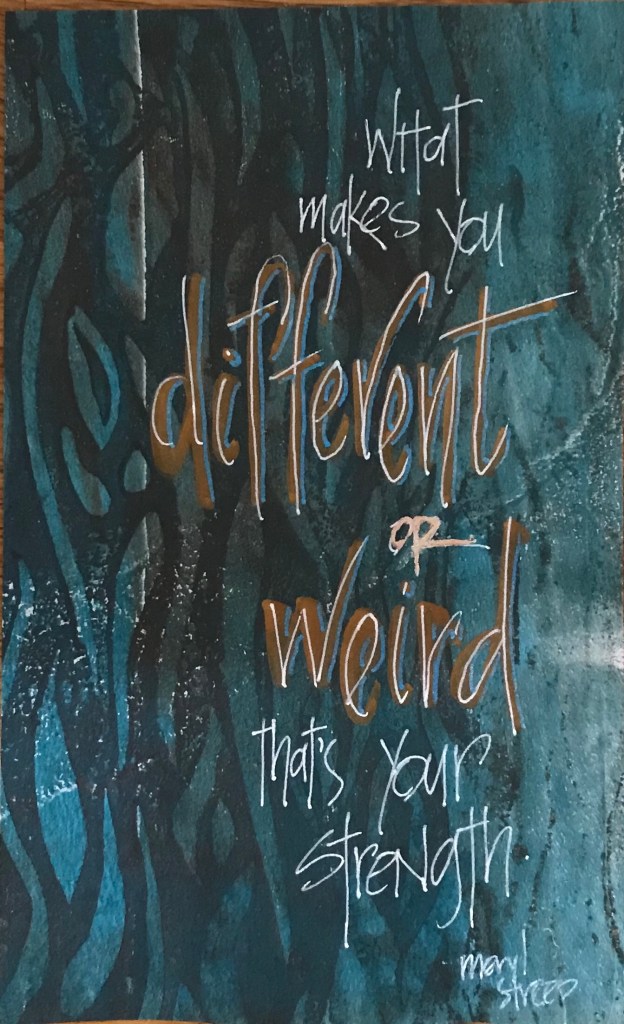 What
makes you
different
or
weird
that's your
strength.
meryl
streep